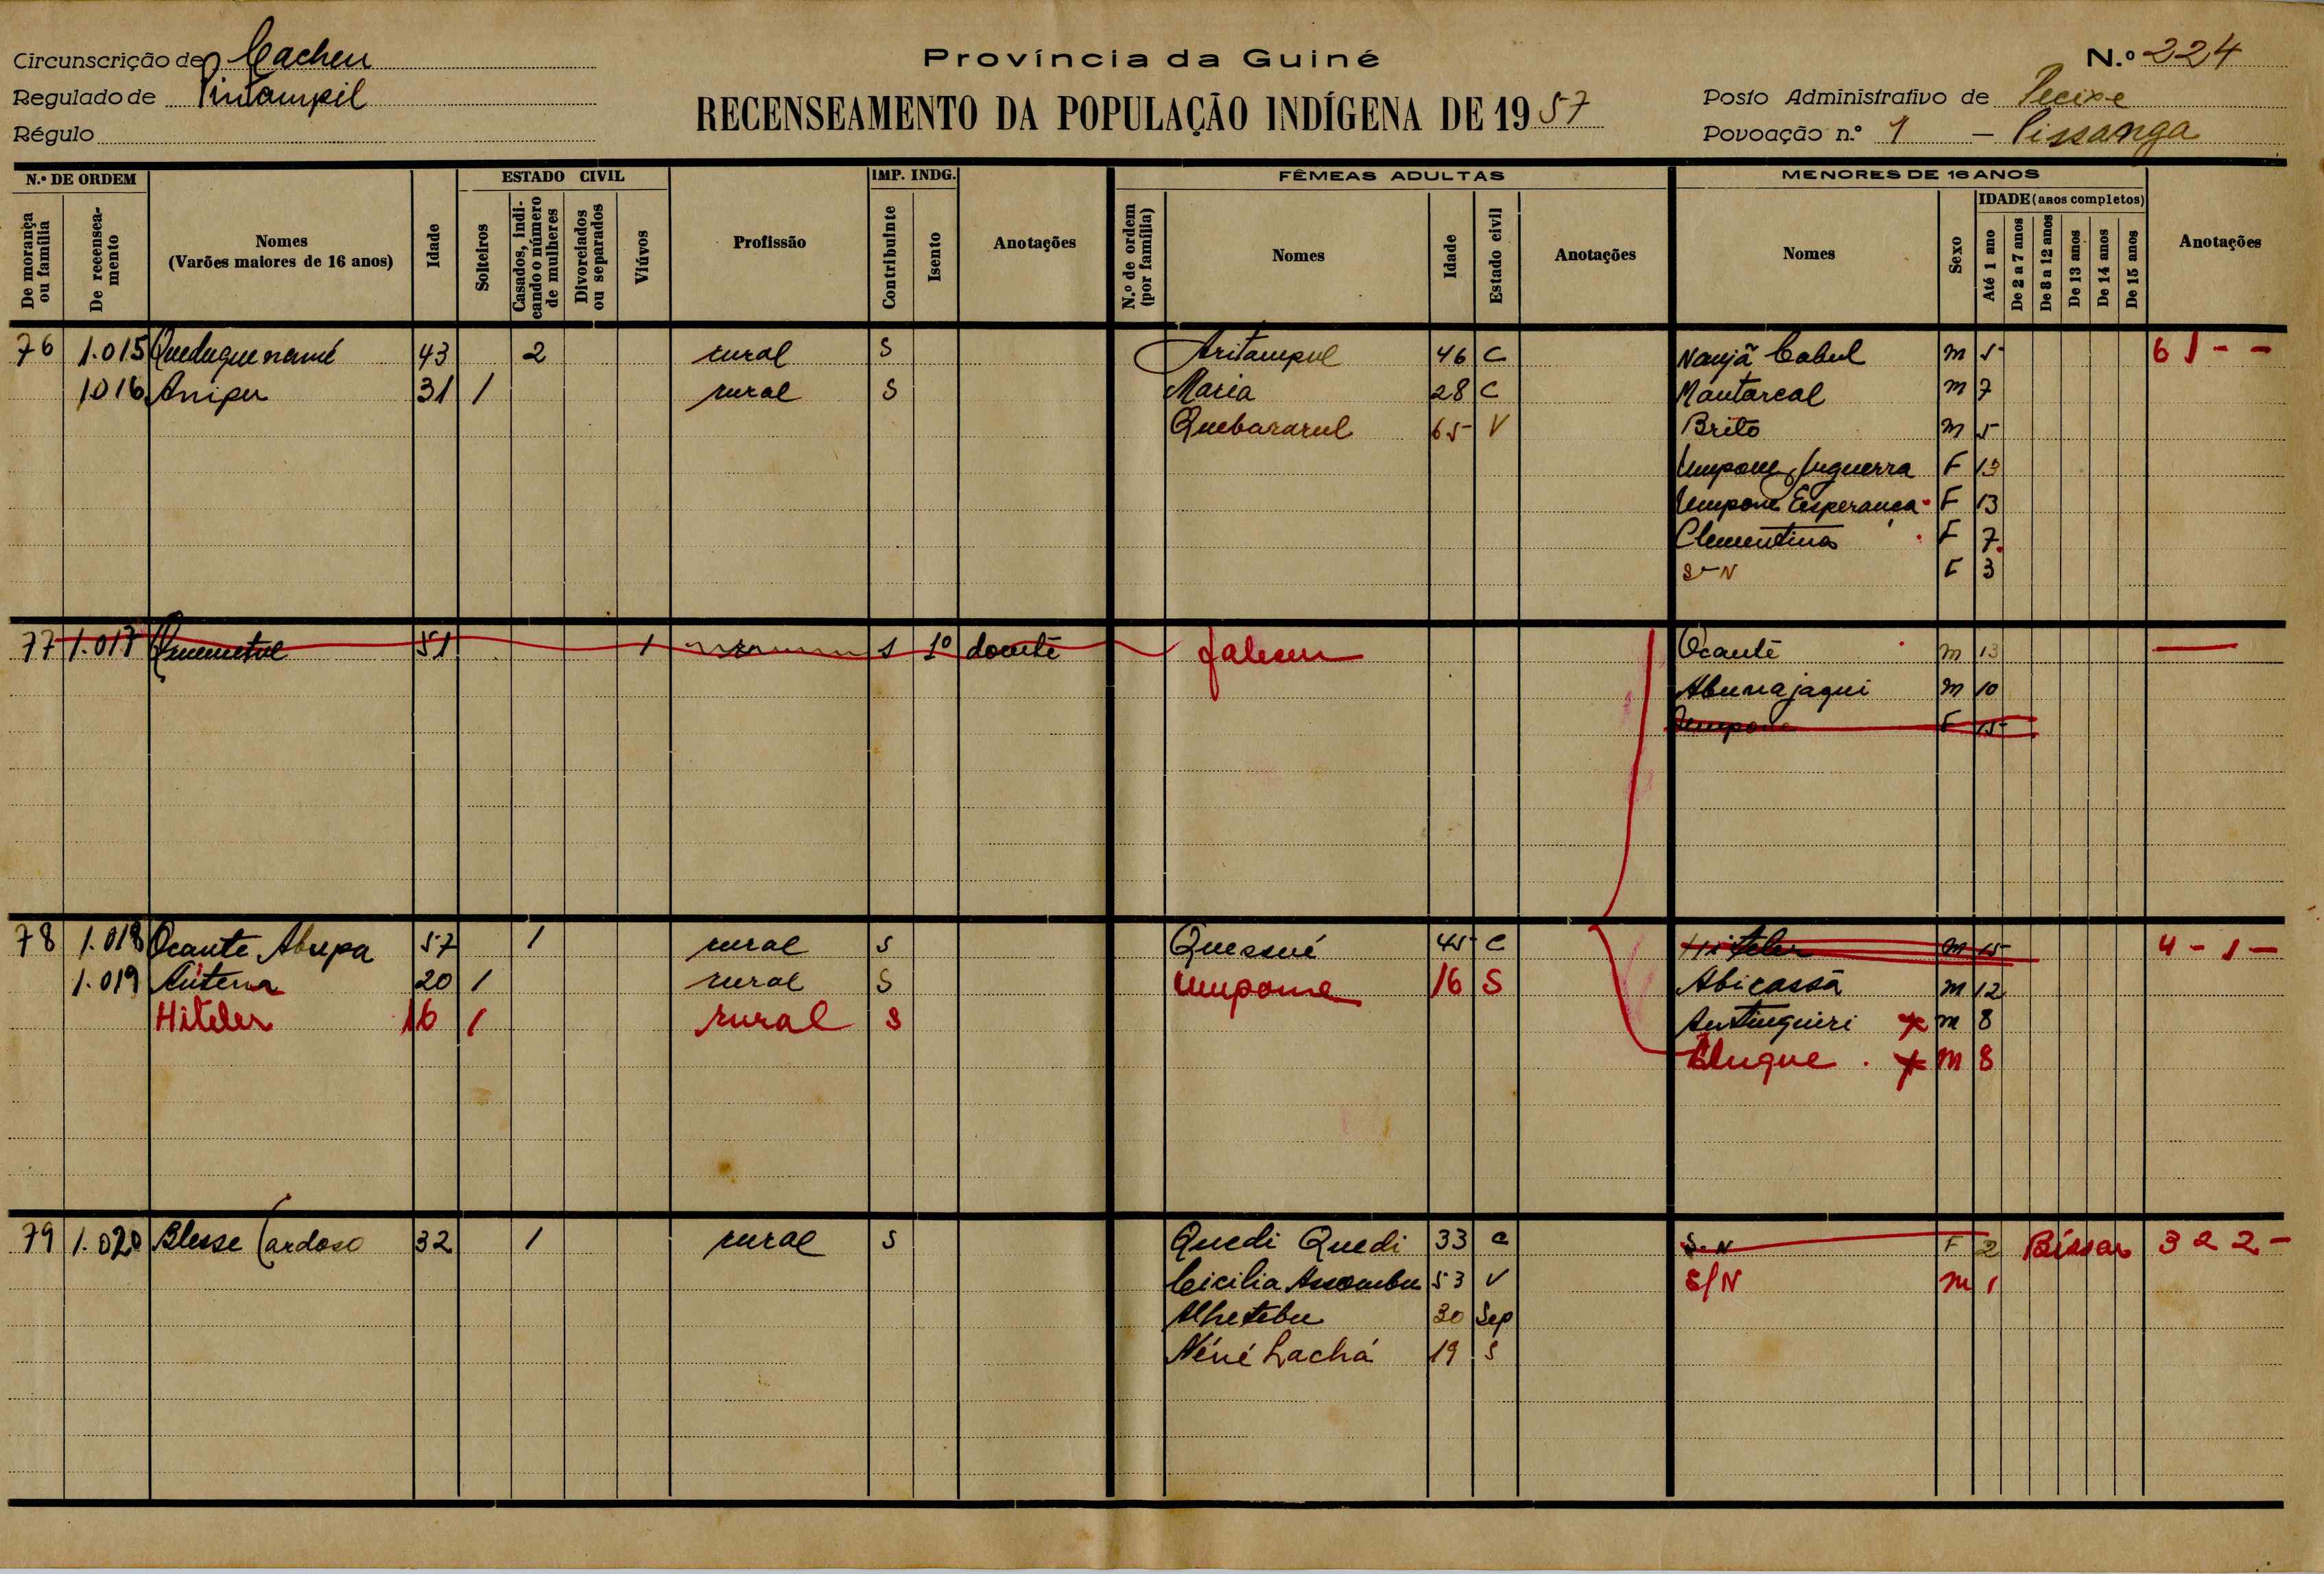 Circunscrição de Cacheu
Regulado de Pintampil
Régulo
Província da Guiné
RECENSEAMENTO DA POPULAÇÃO INDÍGENA DE 1957
N.º 224
Posto Administrativo de Pecixe
Povoação n.º 1 — Pissanga
N.º DE ORDEM
De morança ou família
De recenseamento
Nomes
(Varões maiores de 16 anos)
Idade
ESTADO CIVIL
Solteiros
Casados, indicando o número de mulheres
Divorciados ou separados
Viúvos
Profissão
IMP. INDG.
Contribuinte
Isento
Anotações
FÊMEAS ADULTAS
N.º de ordem (por família)
Nomes
Idade
Estado civil
Anotações
MENORES DE 16 ANOS
Nomes
Sexo
IDADE (anos completos)
Até 1 ano
De 2 a 7 anos
De 8 a 12 anos
De 13 anos
De 14 anos
De 15 anos
Anotações
76 1.015 Queduguenamé 43 2 rural S Aritampul 46 C Naujã Cabul M 5 6 1 - -
1016 Anipu 31 1 rural S Maria 28 C Mantareal M 7
Quebararul 65 V Brito M 5
Umpone Juguerra F 13
Umpone Esperança F 13
Clementina F 7
S-N F 3
77 1.017 51 1 S 1º doente faleceu Ocantê M 13 —
Abunajaqui M 10
Umpone F 15
78 1.018 Ocante Abupa 57 1 rural S Quessué 45 C Hiteler M 15 4 - 1 -
1.019 Antena 20 1 rural S Umpone 16 S Abicassã M 12
Hiteler 16 1 rural S Antinguiri M 8
Blugue M 8
79 1.020 Blesse Cardoso 32 1 rural S Quedi Quedi 33 C S-N F 2 Bissau 3 2 2 -
Cicilia Assombu 53 V S/N M 1
Alhetebu 30 Sep
Néné Lachá 19 S